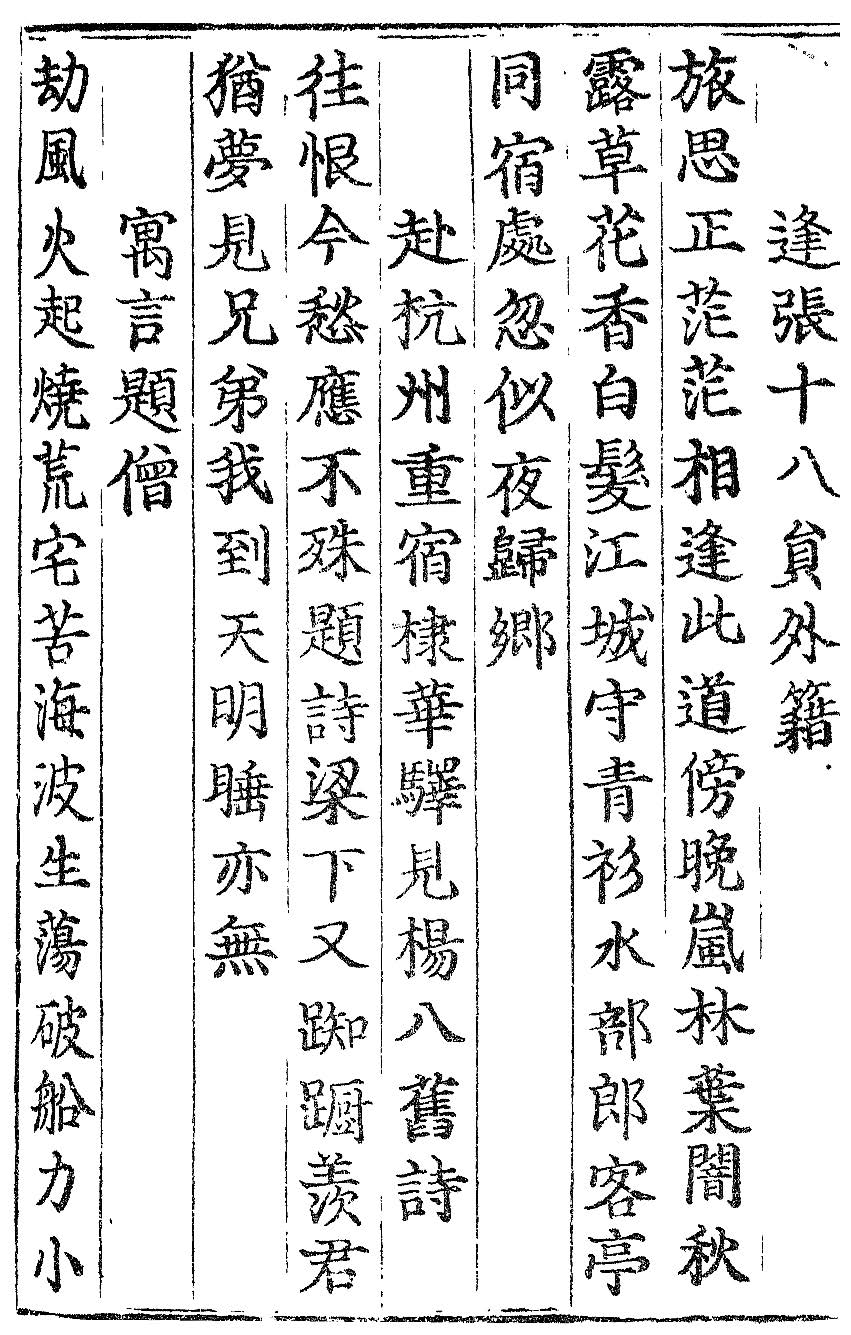 逢張十八負外籍
旅思正茫茫相逢此道傍晚嵐林葉闇秋
露草花香白髮江城守青衫水部郎客亭
同宿處忽似夜歸鄉
赴杭州重宿棣華驛見楊八舊詩
往恨今愁應不殊題詩梁下又踟躕羨君
猶夢見兄弟我到天明睡亦無
寓言題僧
劫風火起燒荒宅苦海波生蕩破船力小